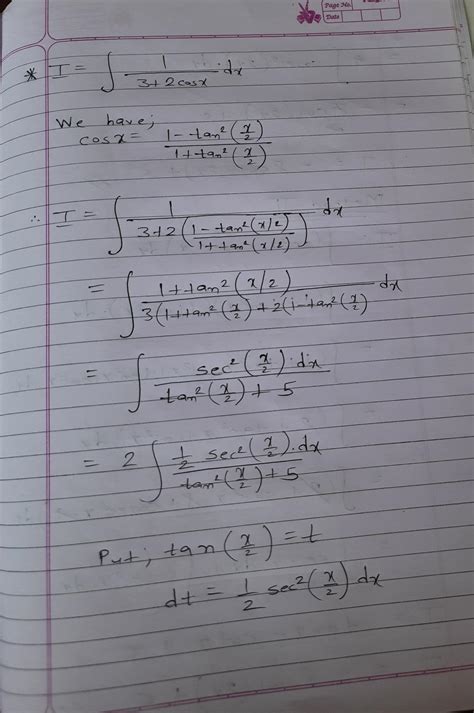 Page No.
Date
* I = ∫ 1/(3+2cosx) dx
We have;
cosx = (1-tan²(x/2))/(1+tan²(x/2))
∴ I = ∫ 1/(3+2((1-tan²(x/2))/(1+tan²(x/2)))) dx
= ∫ (1+tan²(x/2))/(3(1+tan²(x/2)+2(1-tan²(x/2)) dx
= ∫ (sec²(x/2)·dx)/(tan²(x/2)+5)
= 2 ∫ (1/2 sec²(x/2)·dx)/(tan²(x/2)+5)
Put; tan(x/2) = t
dt = 1/2 sec²(x/2) dx